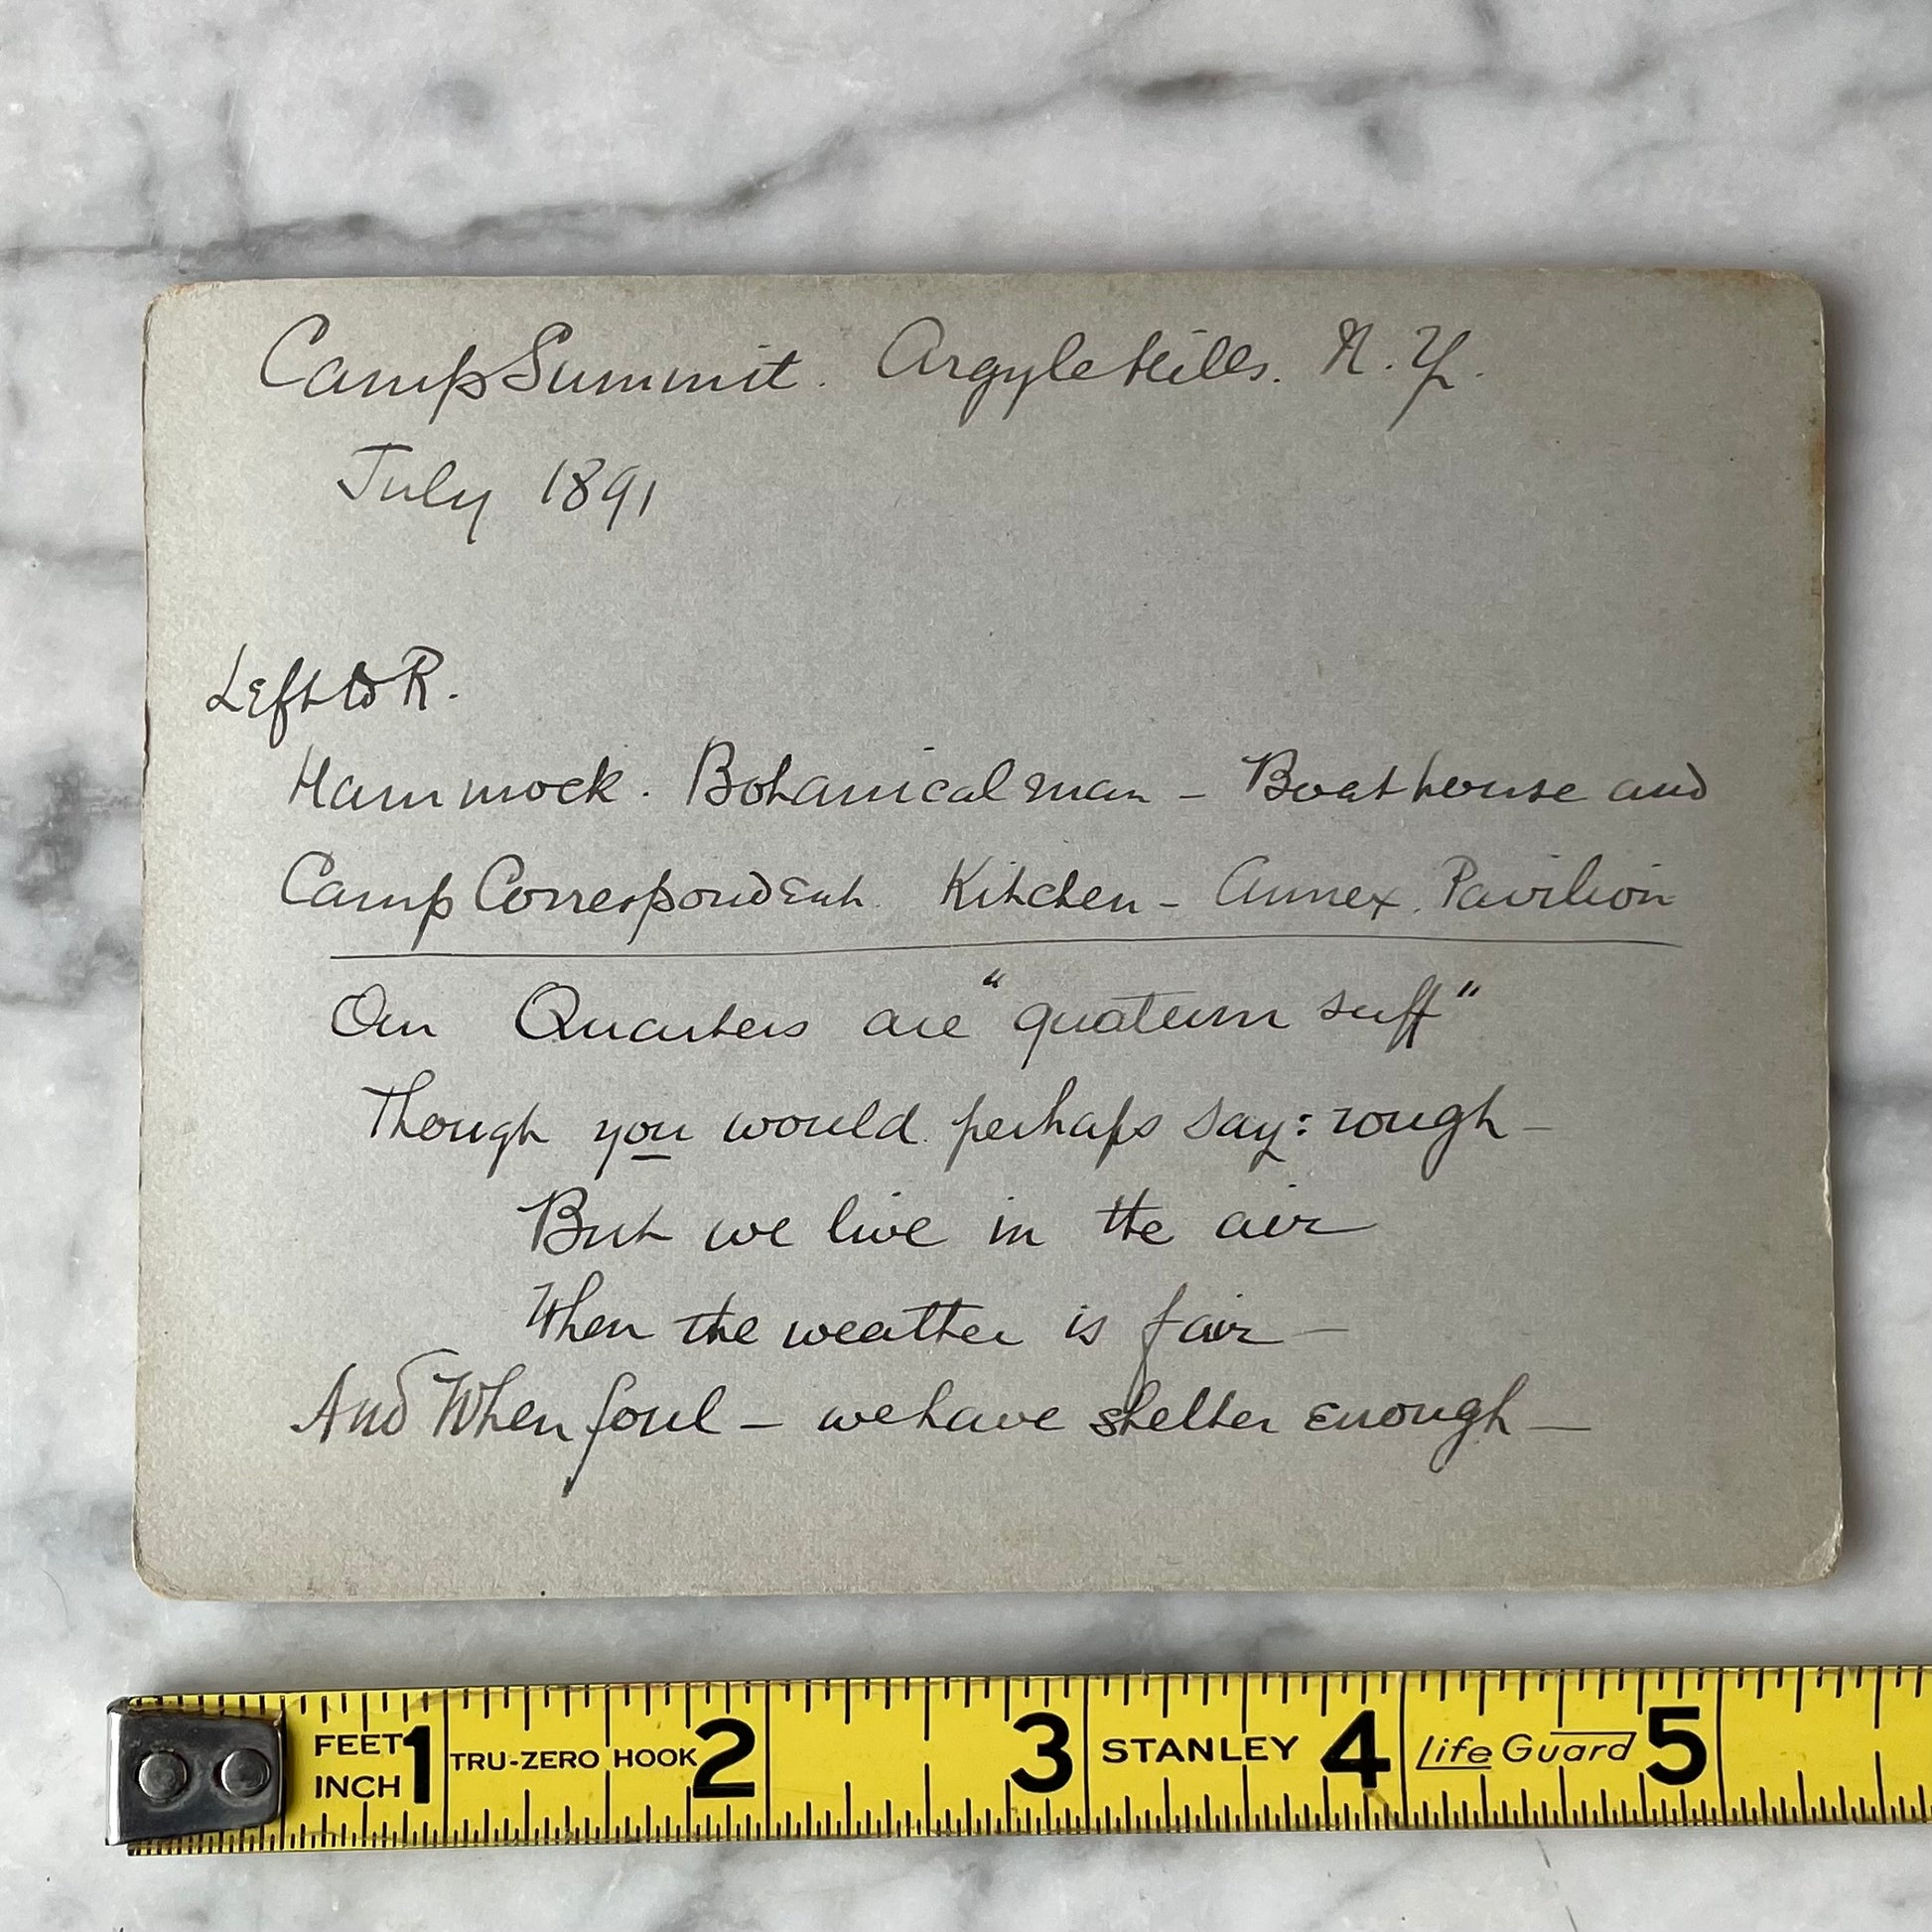 Camp Summit. Argyle Hills. N.Y.
July 1891
Left to R.
Hammock. Botanical man - Boat house and
Camp Correspondent. Kitchen - Annex. Pavilion
Our Quarters are "quatum suff"
Though you would perhaps say: rough -
But we live in the air
When the weather is fair -
And When foul - we have shelter enough -
FEET 1 TRU-ZERO HOOK 2 3 STANLEY 4 Life Guard 5
INCH